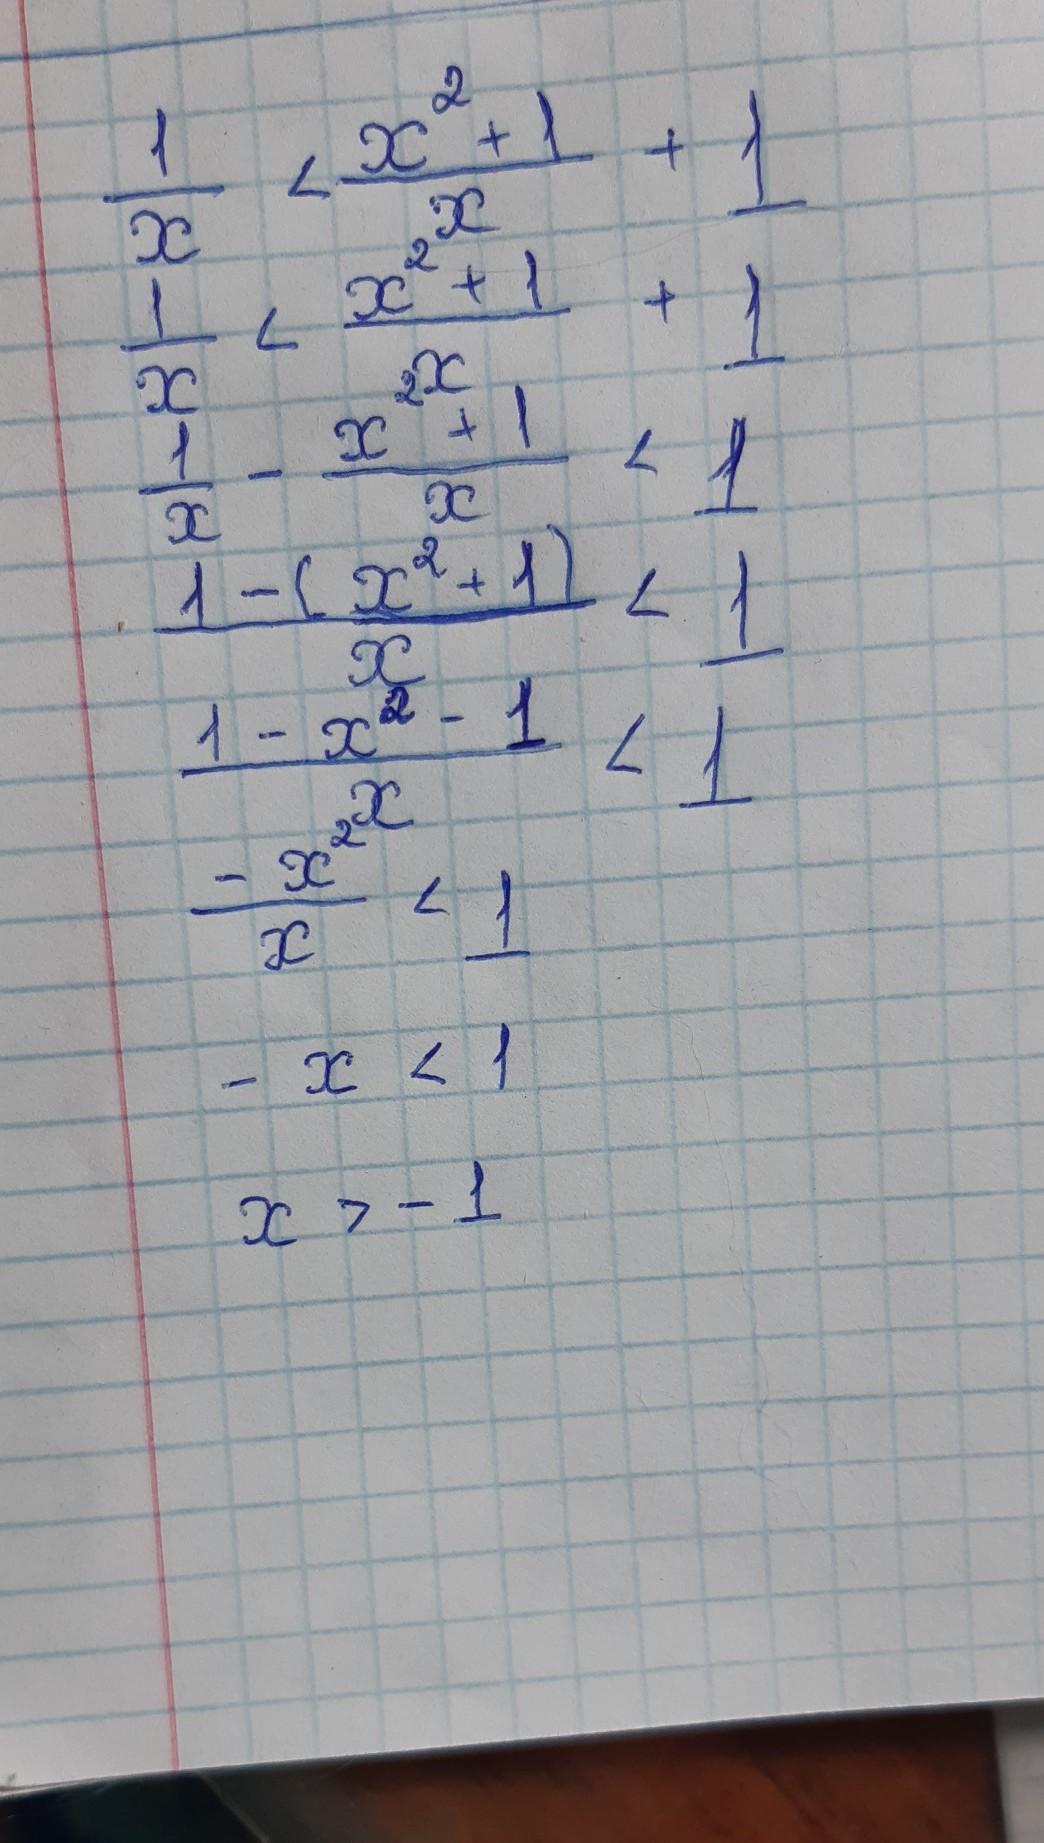 1/x < (x² + 1)/x + 1
1/x < (x² + 1)/x + 1
1/x - (x² + 1)/x < 1
(1 - (x² + 1))/x < 1
(1 - x² - 1)/x < 1
(- x²)/x < 1
- x < 1
x > - 1